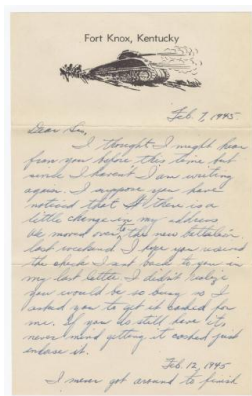 Fort Knox, Kentucky
Feb. 7, 1945
Dear Sis,
I thought I might hear
from you before this time but
since I haven't I am writing
again. I suppose you have
noticed that there is a
little change in my address
We moved over to the new battalion
last weekend. I hope you received
the check I sent back to you in
my last letter I didn't realize
you would be so busy as I
asked you to get it cashed for
me. If you do still have it,
never mind getting it cashed just
endorse it.
Feb. 12, 1945
I never got around to finish